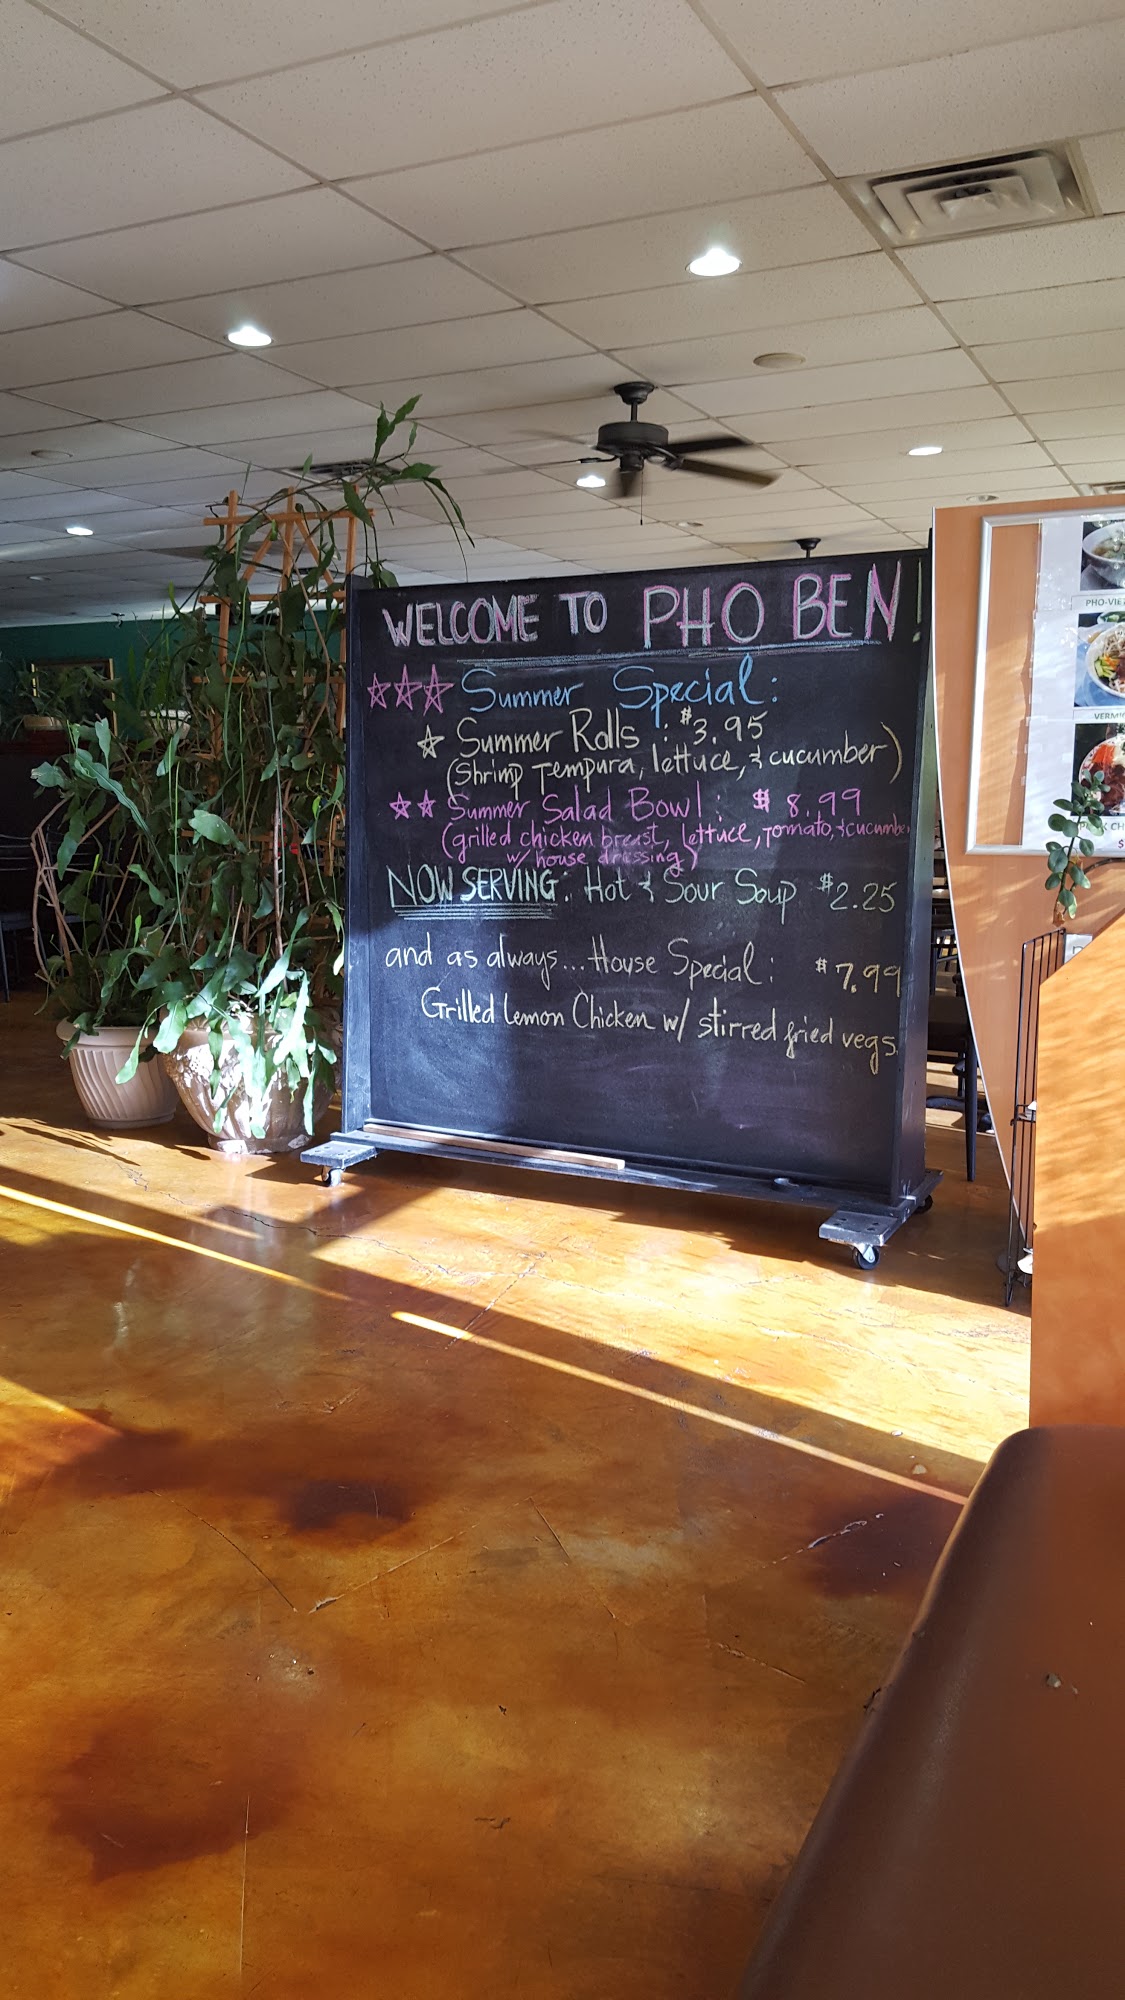 WELCOME TO PHO BEN!
Summer Special:
Summer Rolls : $3.95
(Shrimp Tempura, lettuce, & cucumber)
Summer Salad Bowl : $ 8.99
(grilled chicken breast, lettuce, tomato, & cucumber
w/ house dressing)
NOW SERVING: Hot & Sour Soup $2.25
and as always... House Special : $7.99
Grilled Lemon Chicken w/ stirred fried vegs.
PHO-VIET
VERMI